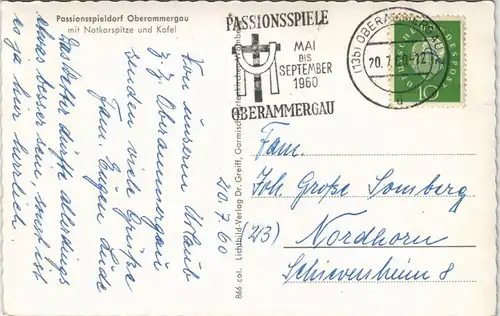 Passionsspieldorf Oberammergau
mit Notkarspitze und Kofel
PASSIONSSPIELE
MAI
BIS
SEPTEMBER
1960
OBERAMMERGAU
(13b) OBERAMMERGAU
20.7.60-12
DEUTSCHE BUNDESPOST
10
20.7.60
Von unserem Urlaub
z. Z. Oberammergau
senden viele Grüße
Fam. Eugen Lude
Das Wetter dürfte allerdings
etwas besser sein, sonst ist
es ja hier herrlich.
866 col. Lichtbild-Verlag Dr. Greiff, Garmisch-Partenkirchen
Fam.
Joh. Große Somberg
(23) Nordhorn
Schieversheim 8